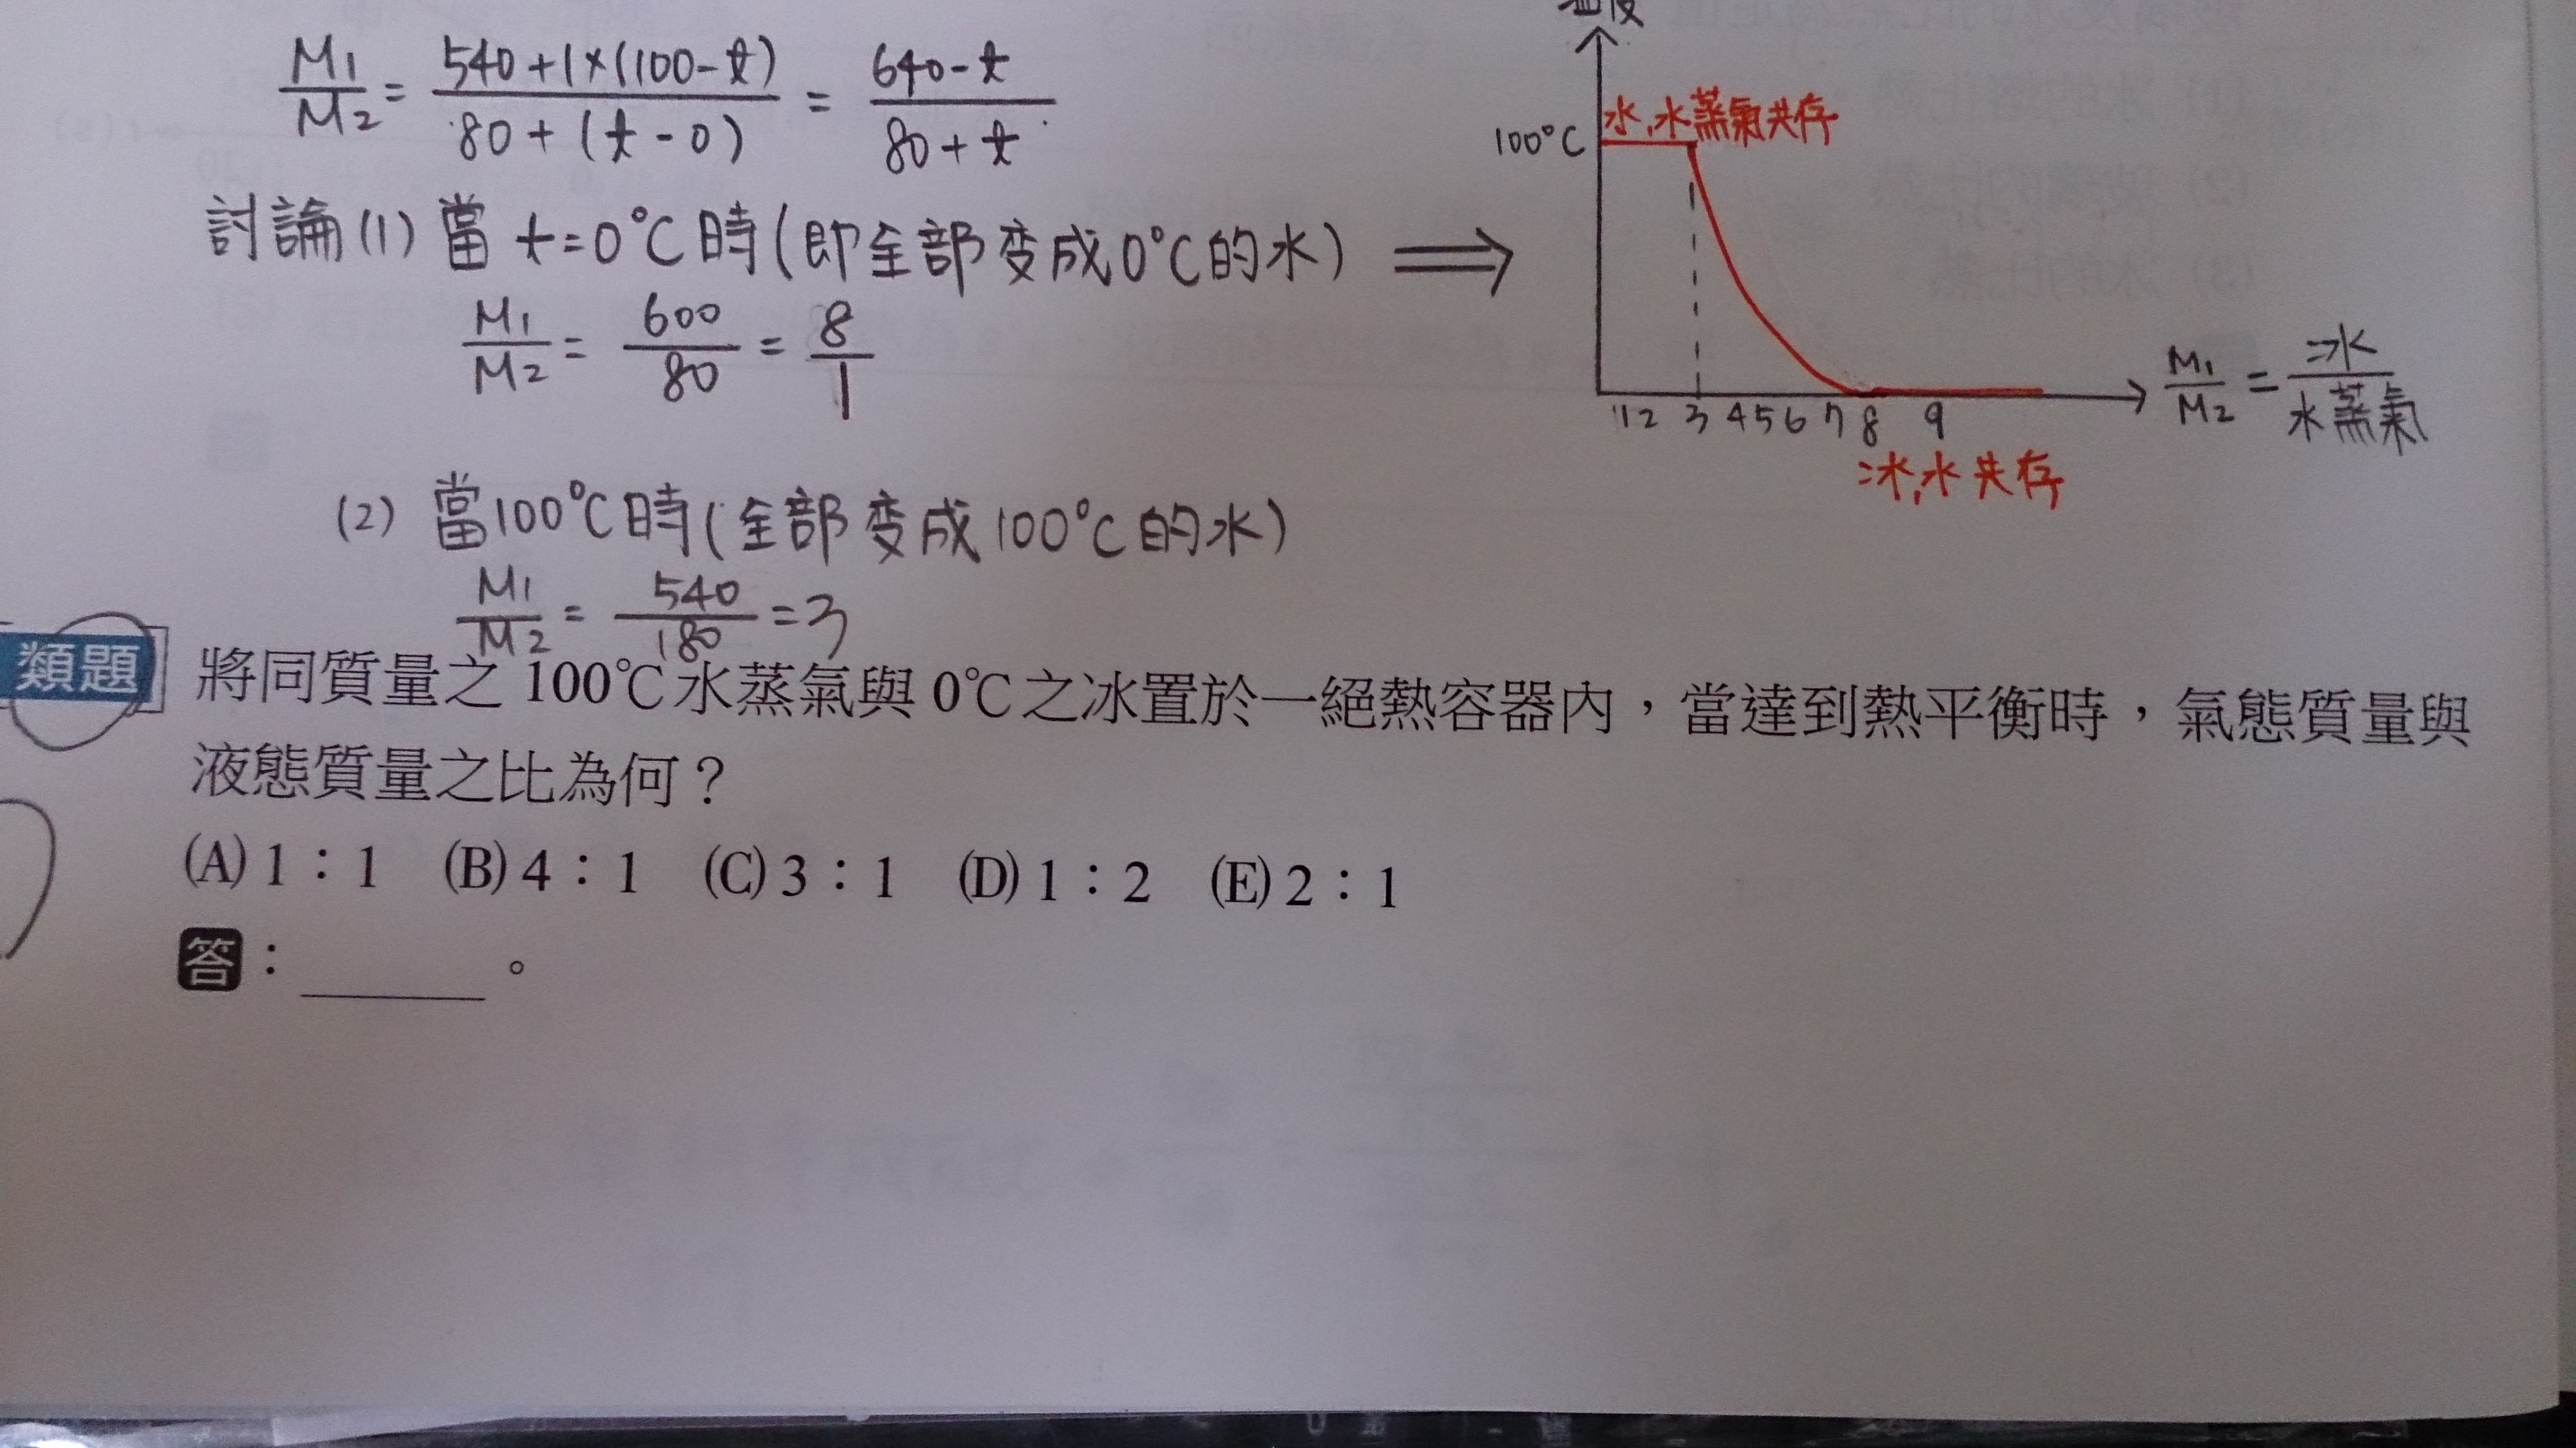 M₁/M₂ = 540+1×(100-t) / 80+(t-0) = 640-t / 80+t
討論(1) 當 t=0°C時(即全部变成0°C的水) ⟹
M₁/M₂ = 600/80 = 8/1
(2) 當100°C時(全部变成100°C的水)
M₁/M₂ = 540/180 = 3
100°C
水,水蒸氣共存
1 2 3 4 5 6 7 8 9
冰,水共存
M₁/M₂ = 冰/水蒸氣
類題 將同質量之 100℃水蒸氣與 0℃之冰置於一絕熱容器內，當達到熱平衡時，氣態質量與
液態質量之比為何？
(A) 1：1 (B) 4：1 (C) 3：1 (D) 1：2 (E) 2：1
答：______。